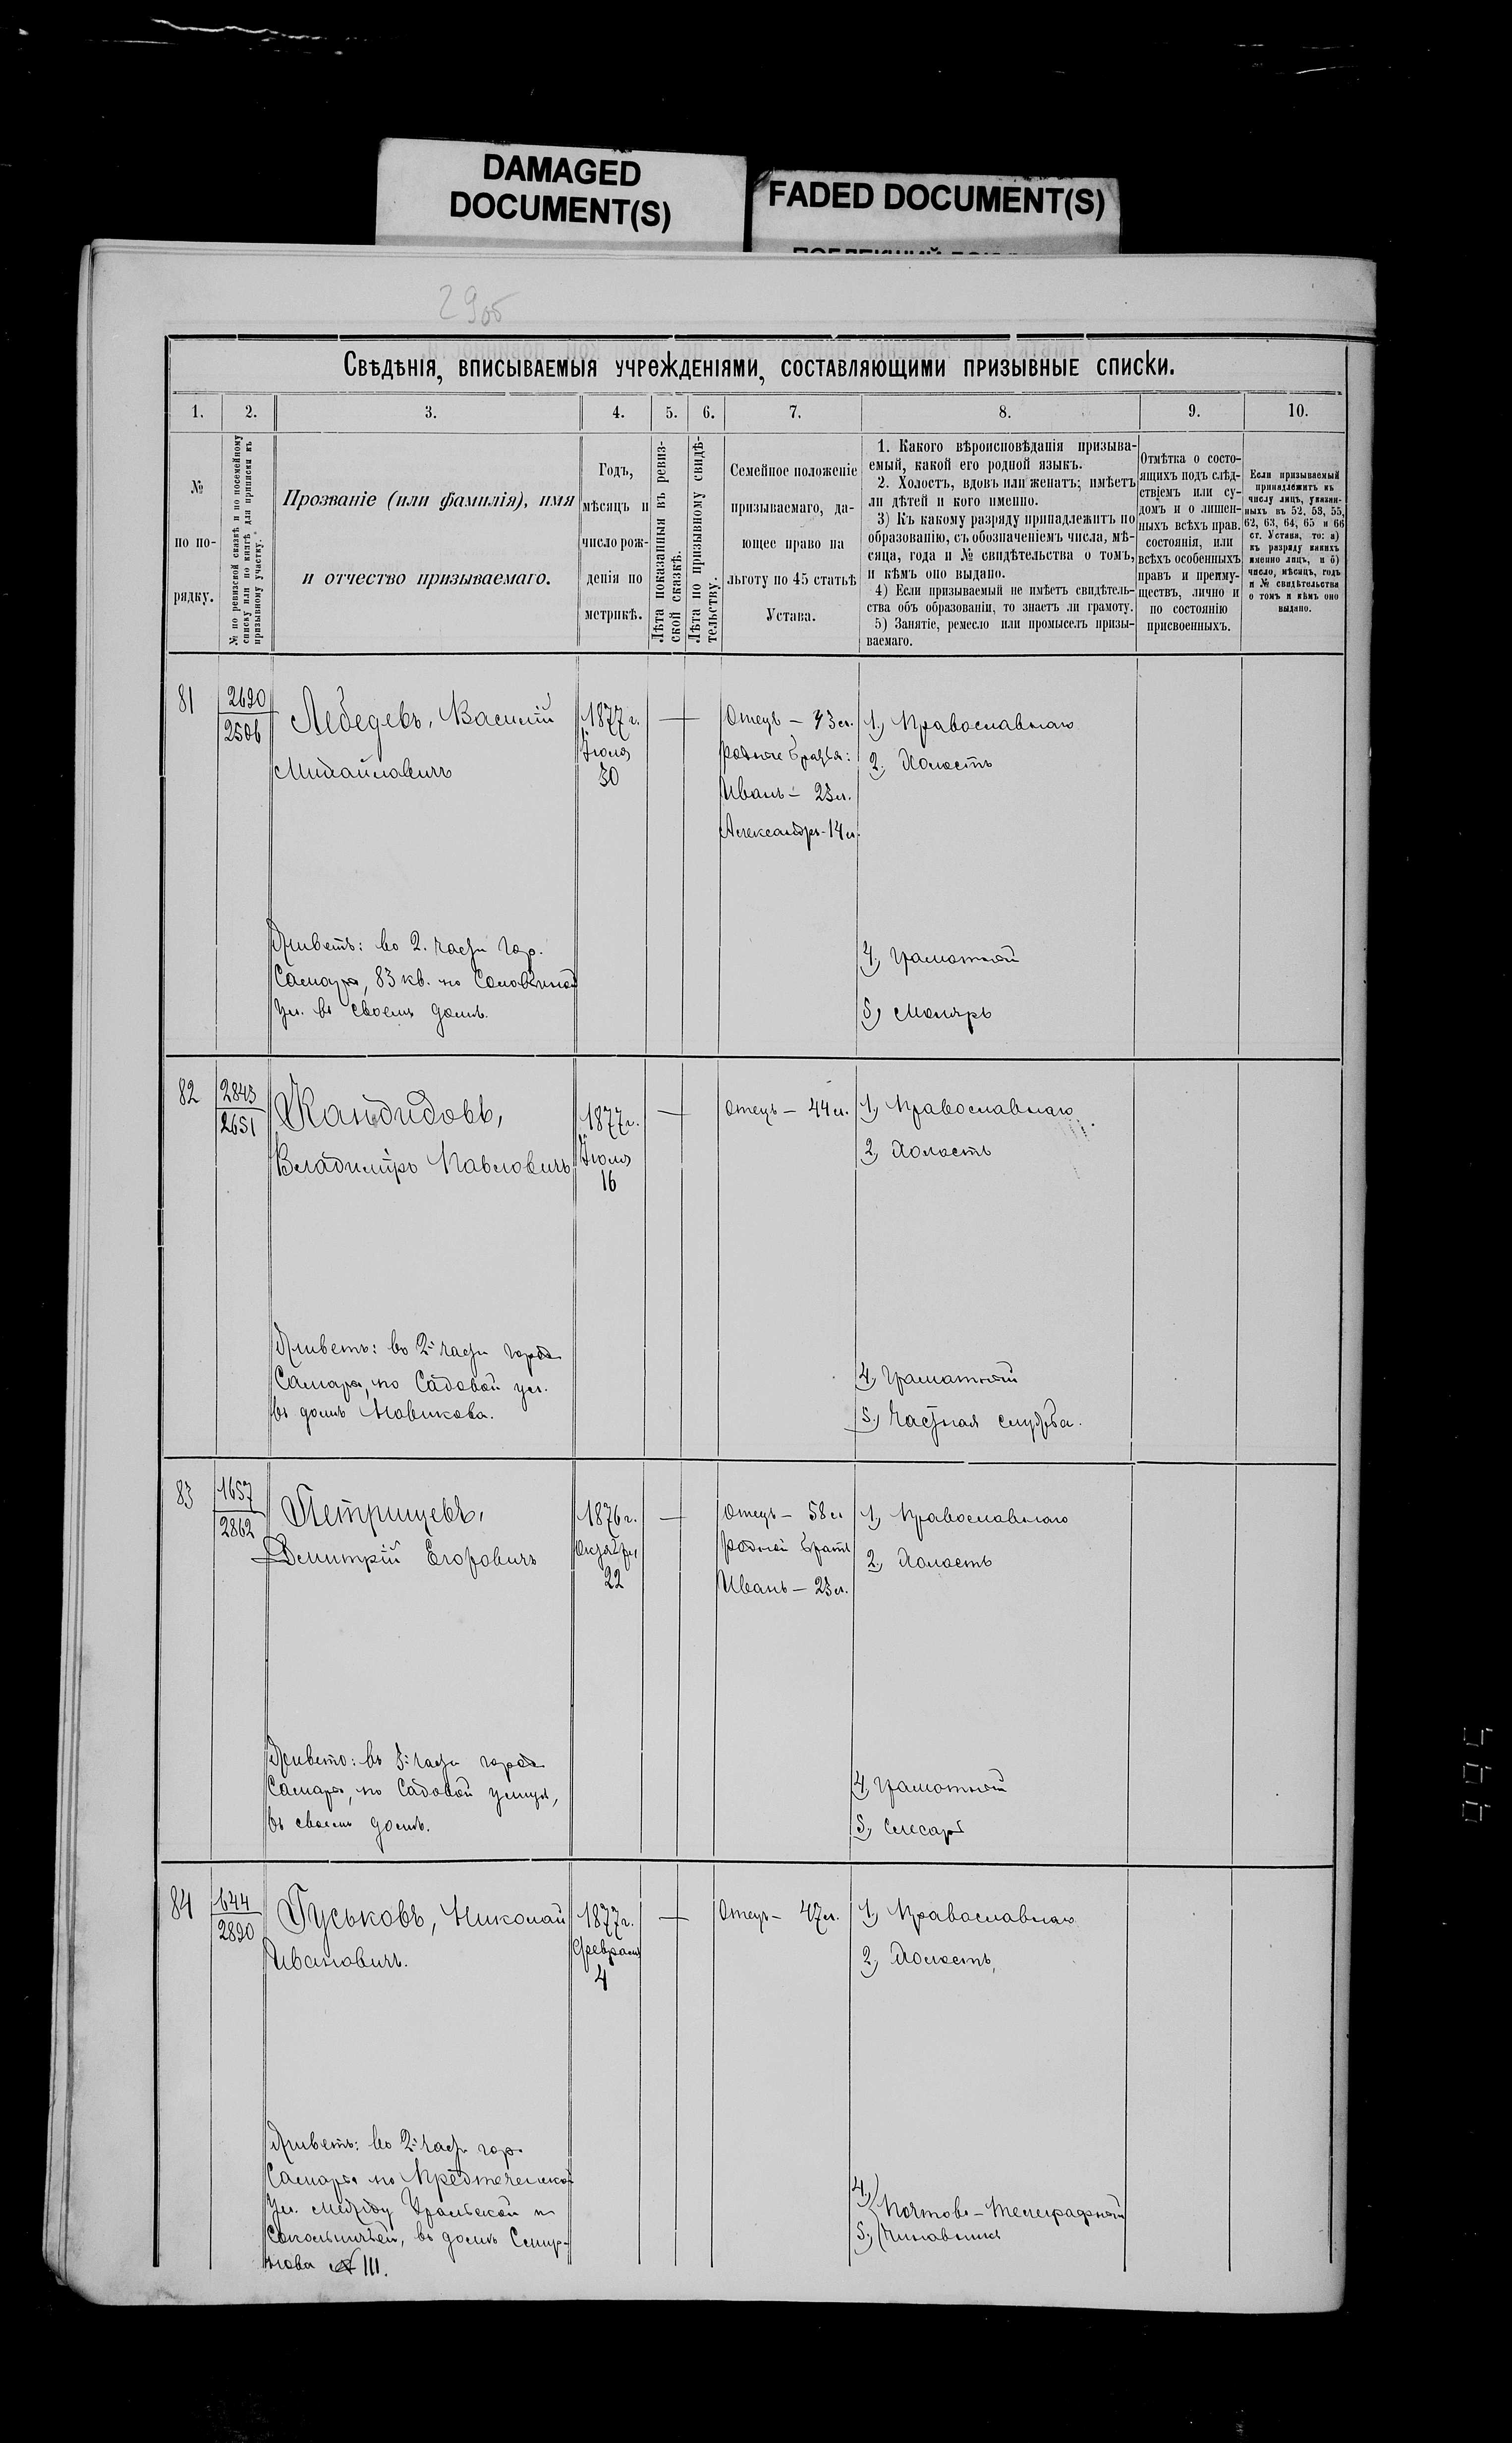 DAMAGED
DOCUMENT(S)
FADED DOCUMENT(S)
29об
Свѣдѣнія, вписываемыя учрежденіями, составляющими призывные списки.
1. 2. 3. 4. 5. 6. 7. 8. 9. 10.
№
по по-
рядку.
№ по ревизской сказкѣ и по посемейному
списку или по книгѣ для приписки къ
призывному участку.
Прозваніе (или фамилія), имя
и отчество призываемаго.
Годъ,
мѣсяцъ и
число рож-
денія по
метрикѣ.
Лѣта показанныя въ ревиз-
ской сказкѣ.
Лѣта по призывному свидѣ-
тельству.
Семейное положеніе
призываемаго, да-
ющее право на
льготу по 45 статьѣ
Устава.
1. Какого вѣроисповѣданія призыва-
емый, какой его родной языкъ.
2. Холостъ, вдовъ или женатъ; имѣетъ
ли дѣтей и кого именно.
3) Къ какому разряду принадлежитъ по
образованію, съ обозначеніемъ числа, мѣ-
сяца, года и № свидѣтельства о томъ,
и кѣмъ оно выдано.
4) Если призываемый не имѣетъ свидѣтель-
ства объ образованіи, то знаетъ ли грамоту.
5) Занятіе, ремесло или промыселъ призы-
ваемаго.
Отмѣтка о состо-
ящихъ подъ слѣд-
ствіемъ или су-
домъ и о лишен-
ныхъ всѣхъ прав.
состоянія, или
всѣхъ особенныхъ
правъ и преиму-
ществъ, лично и
по состоянію
присвоенныхъ.
Если призываемый
принадлежитъ къ
числу лицъ, указан-
ныхъ въ 52, 53, 55,
62, 63, 64, 65 и 66
ст. Устава, то: а)
къ разряду какихъ
именно лицъ, и б)
число, мѣсяцъ, годъ
и № свидѣтельства
о томъ и кѣмъ оно
выдано.
81
2690
2506
Лебедевъ, Василій
Михайловичъ
1877 г.
Іюля
30
Отецъ – 43 л.
Родные братья:
Иванъ – 23 л.
Александръ – 14 л.
1, Православнаго
2, Холостъ
Живетъ: во 2. части гор.
Самары, 83 кв. по
ул. въ своемъ домѣ.
4, Грамотный
5, Маляръ
82
2843
2651
Кандидовъ,
Владиміръ Павловичъ
1877 г.
Іюля
16
Отецъ – 44 л.
1, Православнаго
2, Холостъ
Живетъ: во 2й части города
Самары, по Садовой ул.
въ домѣ Новикова.
4, Грамотный
5, Частная служба.
83
1657
2862
Петрищевъ,
Димитрій Егоровичъ
1876 г.
Октября
22
Отецъ – 58 л.
Родной братъ
Иванъ – 23 л.
1, Православнаго
2, Холостъ
Живетъ: въ 3й части города
Самары, по Садовой улицѣ,
въ своемъ домѣ.
4, Грамотный
5, Слесарь
84
644
2890
Гуськовъ, Николай
Ивановичъ.
1877 г.
Февраля
4
Отецъ – 47 л.
1, Православнаго
2, Холостъ,
Живетъ: во 2й части гор.
Самары по Предтеченской
ул. между Уральской и
Сокольничьей, въ домѣ Смир-
нова № 111.
4,
5, Почтово-Телеграфный
чиновникъ